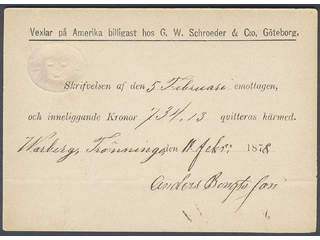 Vexlar på Amerika billigast hos G. W. Schroeder & C:o, Göteborg.
Skrifvelsen af den 5 Februari emottagen,
och inneliggande Kronor 734.13 qvitteras härmed.
Warberg, Trönninge, den 11 febr: 1878
Anders Bengtsson